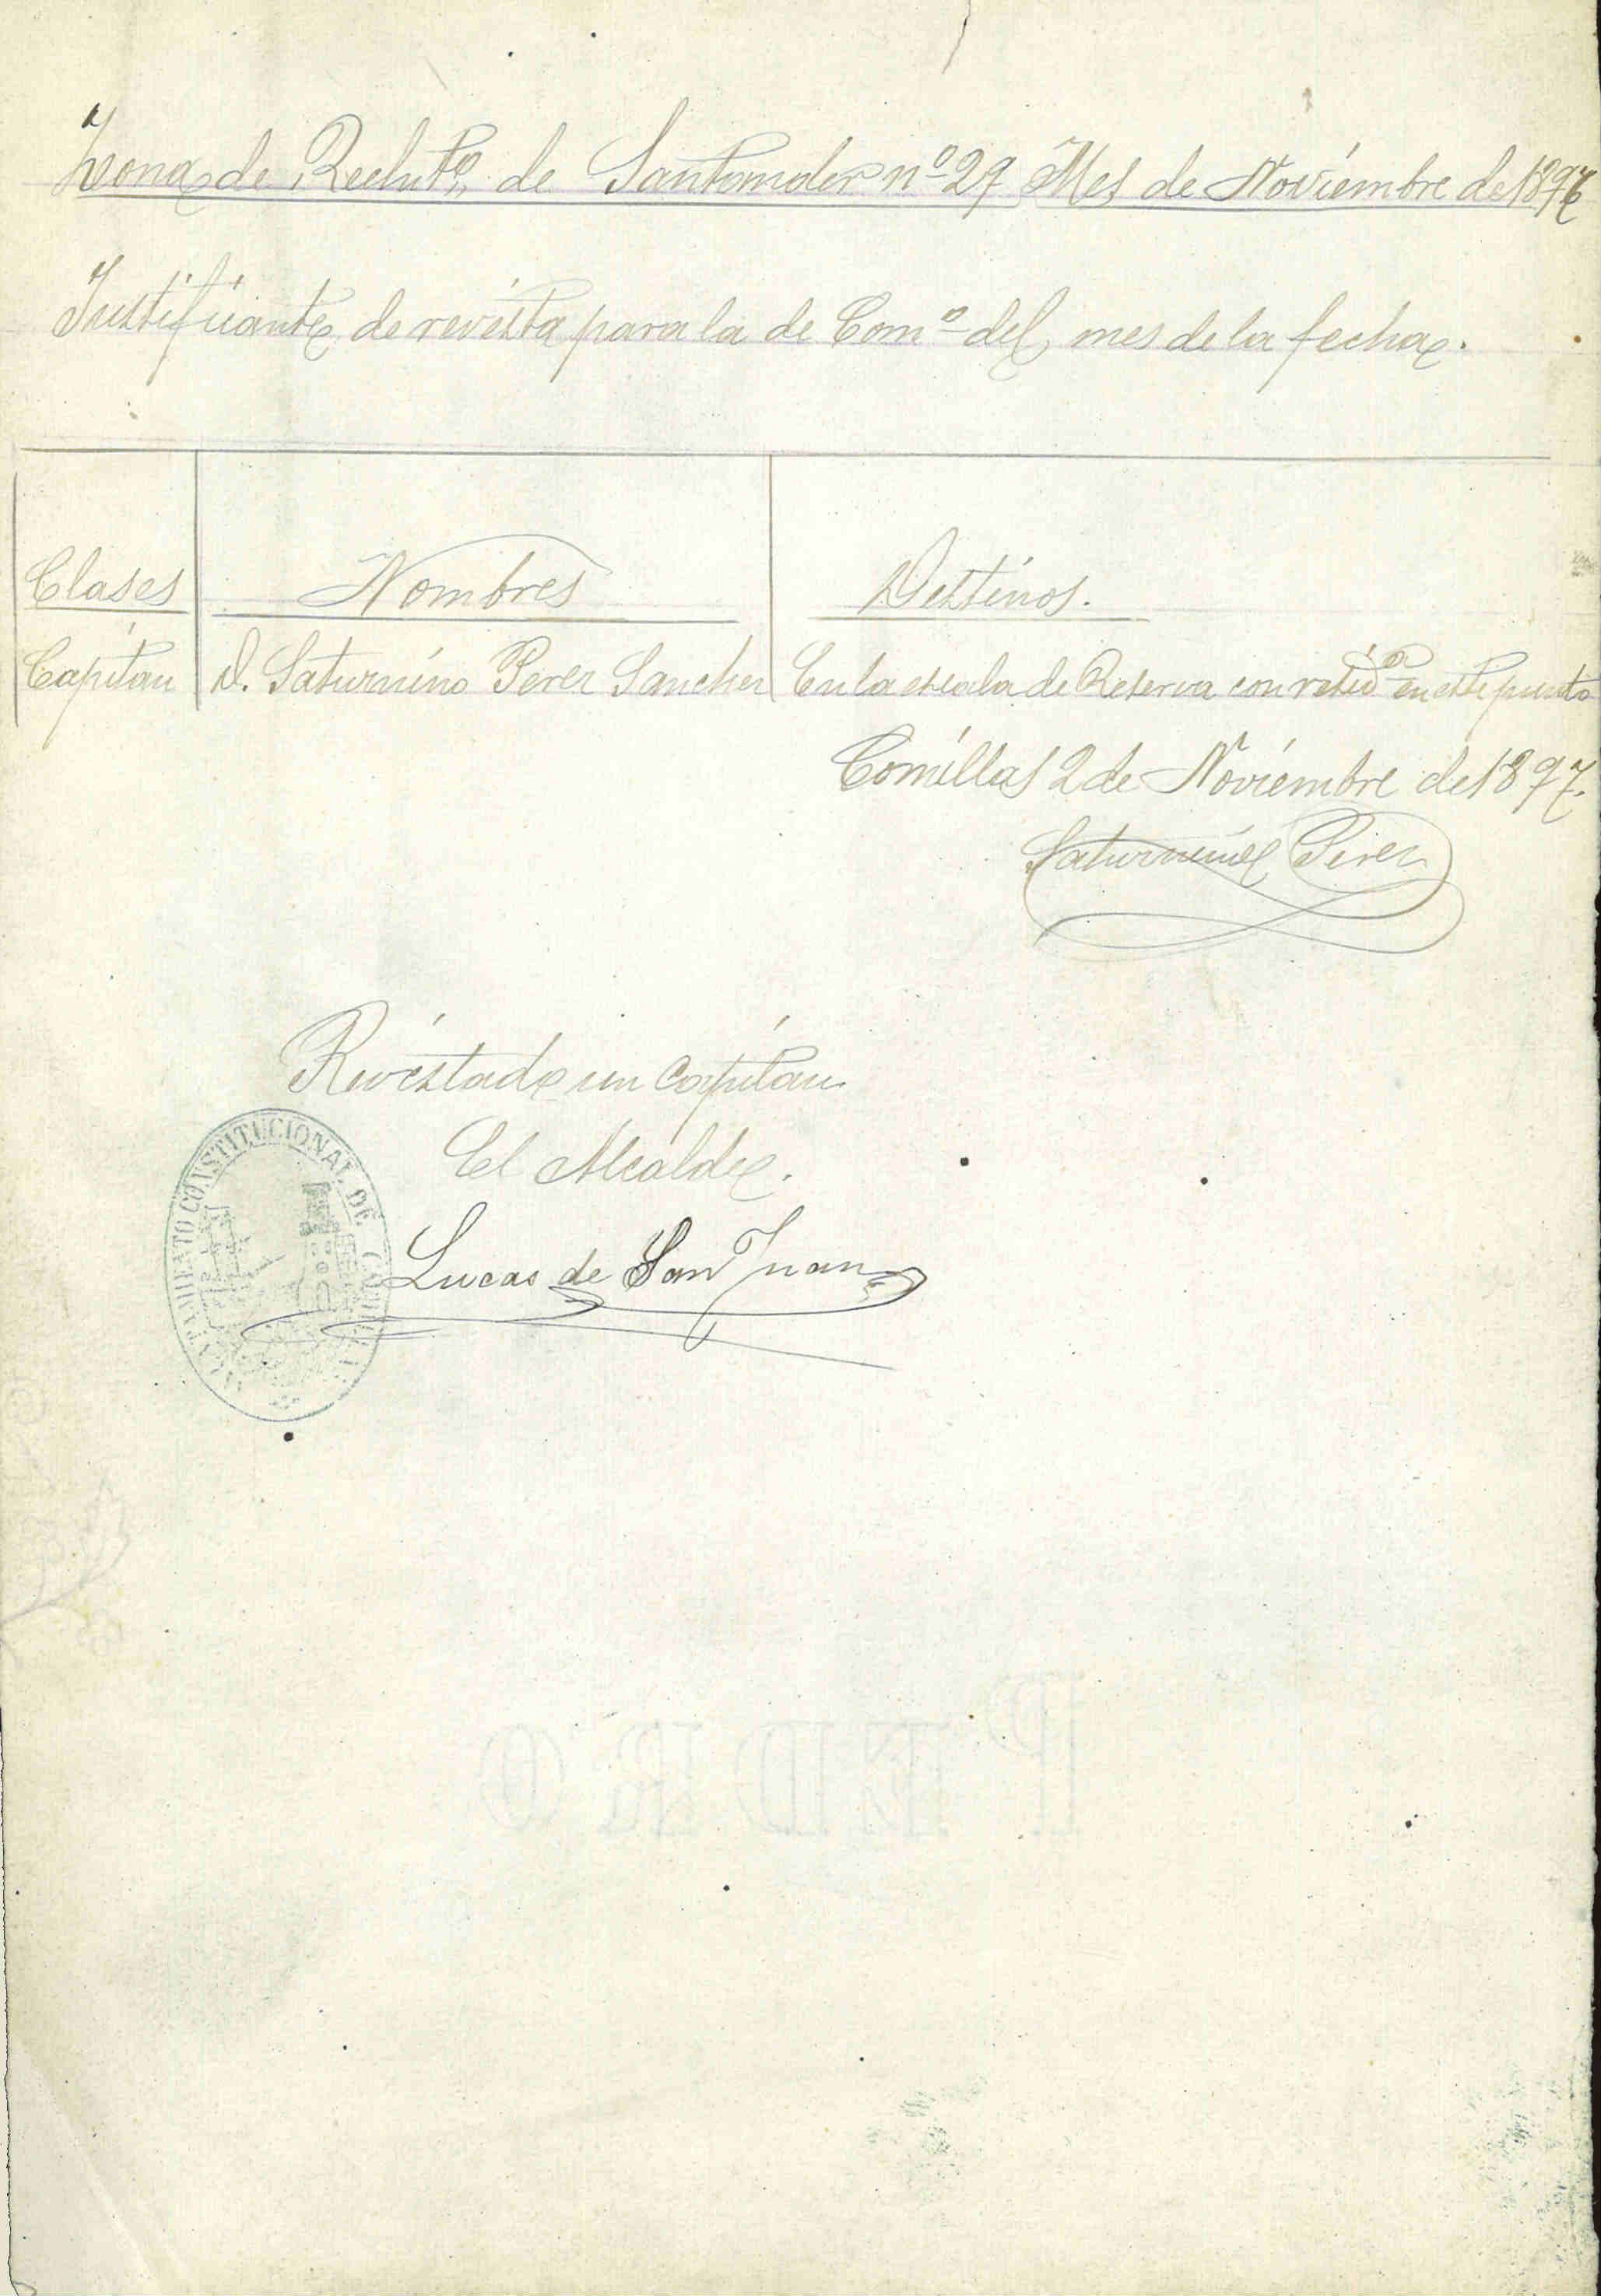 Zona de Reclutº de Santander nº 29 Mes de Noviembre de 1897
Justificante de revista para la de Comº del mes de la fecha.
Clases Nombres Destinos.
Capitan D. Saturnino Perez Sanchez En la escala de Reserva con residª en este punto
Comillas 2 de Noviembre de 1897.
Saturnino Perez
Revistado un Capitan
El Alcalde.
AYUNTAMIENTO CONSTITUCIONAL DE COMILLAS
Lucas de San Juan
PEDRO